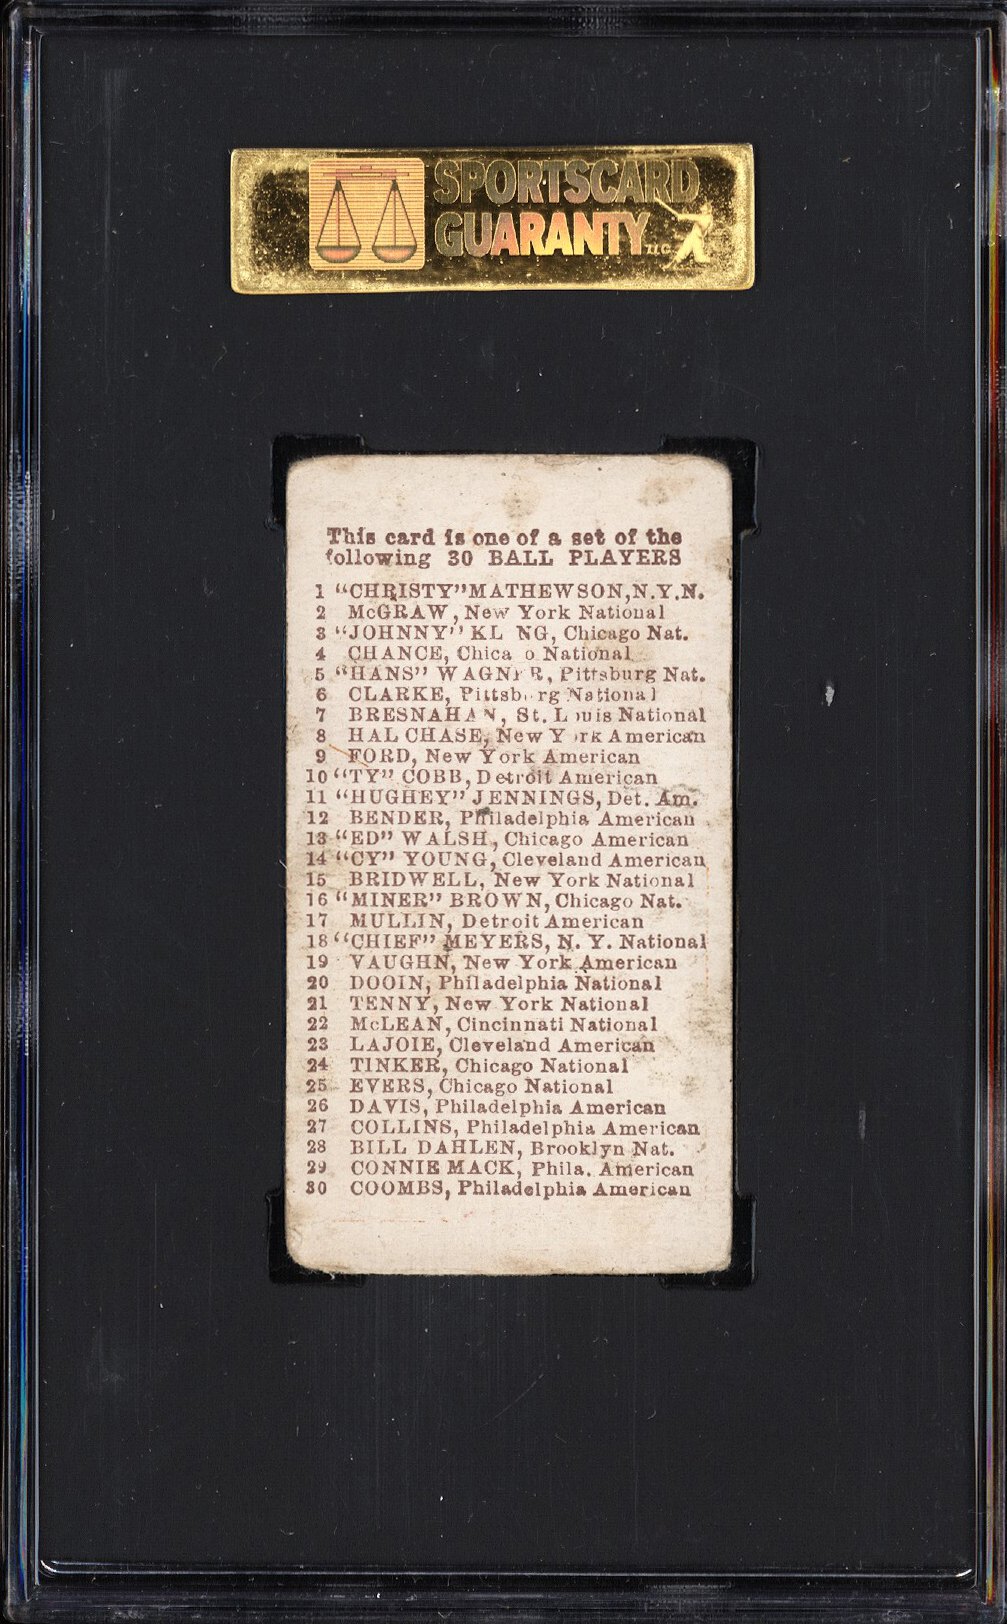 SPORTSCARD
GUARANTY LLC
This card is one of a set of the
following 30 BALL PLAYERS
1 "CHRISTY" MATHEWSON, N.Y.N.
2 McGRAW, New York National
3 "JOHNNY" KL NG, Chicago Nat.
4 CHANCE, Chica o National
5 "HANS" WAGNER, Pittsburg Nat.
6 CLARKE, Pittsburg National
7 BRESNAHAN, St. Louis National
8 HAL CHASE, New York American
9 FORD, New York American
10 "TY" COBB, Detroit American
11 "HUGHEY" JENNINGS, Det. Am.
12 BENDER, Philadelphia American
13 "ED" WALSH, Chicago American
14 "CY" YOUNG, Cleveland American
15 BRIDWELL, New York National
16 "MINER" BROWN, Chicago Nat.
17 MULLIN, Detroit American
18 "CHIEF" MEYERS, N. Y. National
19 VAUGHN, New York American
20 DOOIN, Philadelphia National
21 TENNY, New York National
22 McLEAN, Cincinnati National
23 LAJOIE, Cleveland American
24 TINKER, Chicago National
25 EVERS, Chicago National
26 DAVIS, Philadelphia American
27 COLLINS, Philadelphia American
28 BILL DAHLEN, Brooklyn Nat.
29 CONNIE MACK, Phila. American
30 COOMBS, Philadelphia American